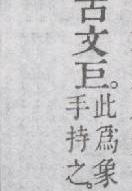 古文巨。
此爲象
手持之。